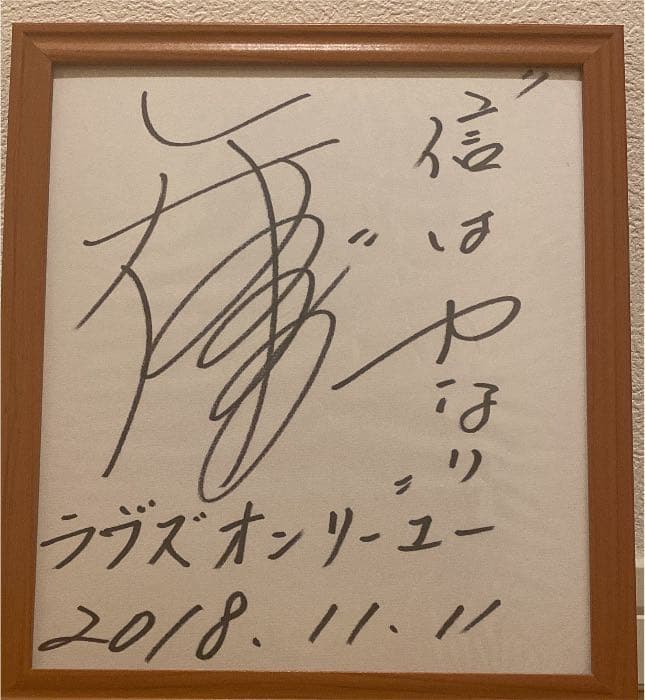 "信は力なり"
ラヴズオンリーユー
2018.11.11